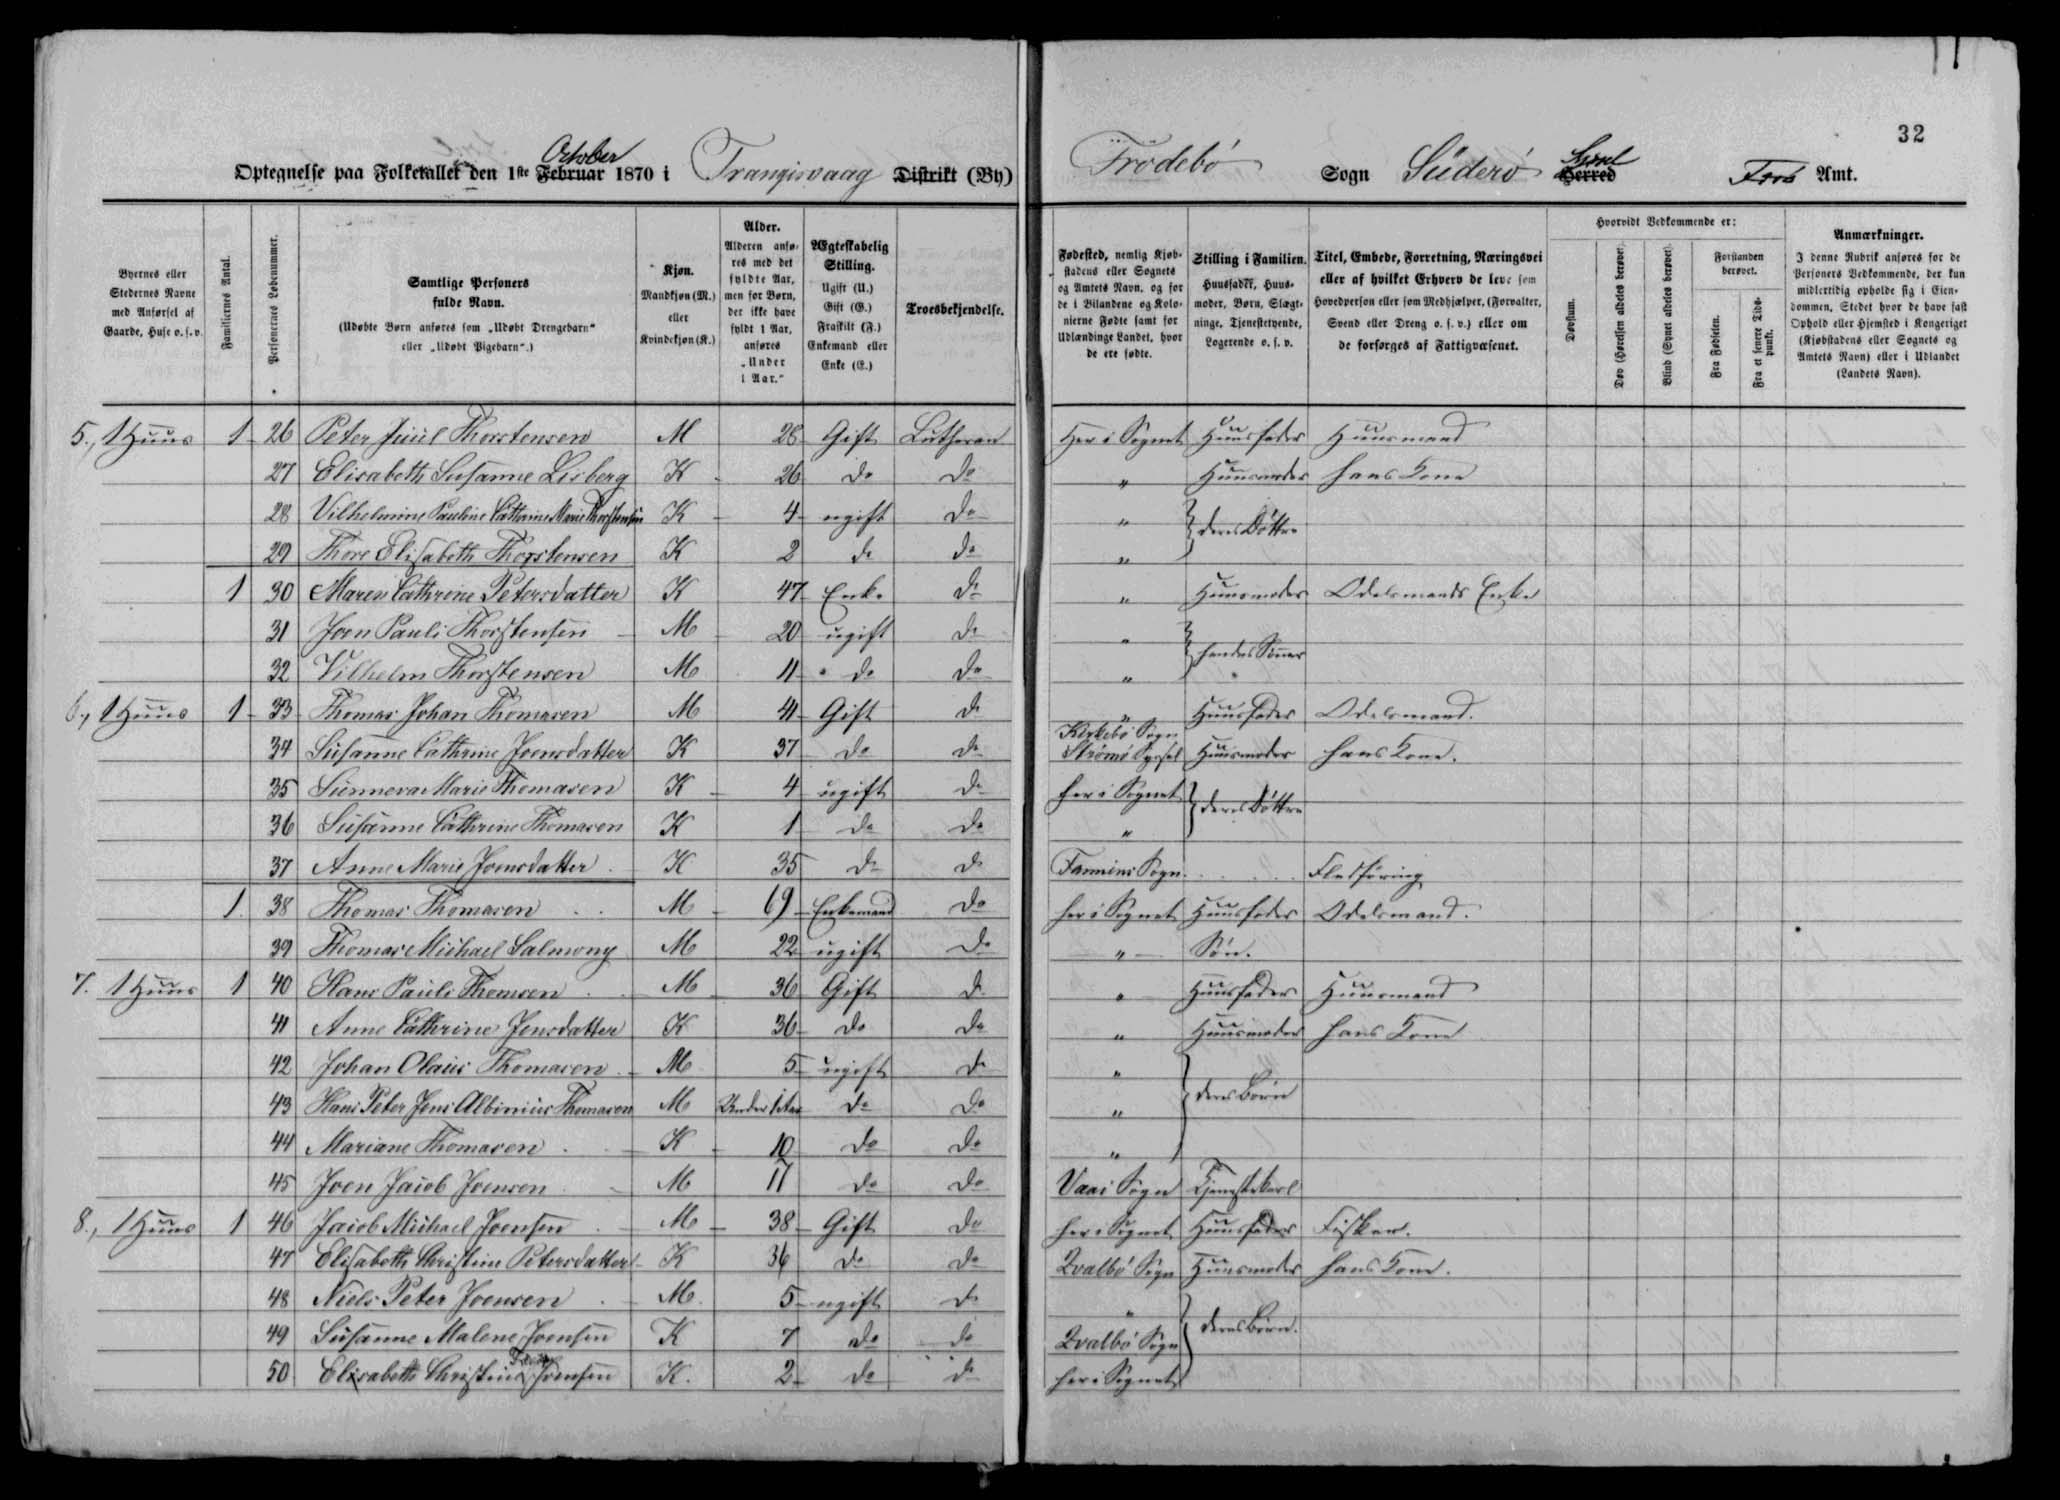 32
Optegnelse paa Folketallet den 1ste Februar October 1870 i Trangisvaag Distrikt (By) Frödebö Sogn Süderö Herred Syssel Færö Amt.
Byernes eller Stedernes Navne med Anførsel af Gaarde, Huse o. s. v.
Familiernes Antal.
Personernes Løbenummer.
Samtlige Personers fulde Navn.
(Udøbte Børn anføres som „Udøbt Drengebarn“ eller „Udøbt Pigebarn“.)
Kjøn.
Mandkjøn (M.) eller Kvindekjøn (K.)
Alder.
Alderen anføres med det fyldte Aar, men for Børn, der ikke have fyldt 1 Aar, anføres „Under 1 Aar.“
Ægteskabelig Stilling.
Ugift (U.) Gift (G.) Fraskilt (F.) Enkemand eller Enke (E.)
Troesbekjendelse.
Fødested, nemlig Kjøbstadens eller Sognets og Amtets Navn, og for de i Bilandene og Kolonierne Fødte samt for Udlændinge Landet, hvor de ere fødte.
Stilling i Familien.
Huusfader, Huusmoder, Børn, Slægtninge, Tjenestetyende, Logerende o. s. v.
Titel, Embede, Forretning, Næringsvei eller af hvilket Erhverv de leve som Hovedperson eller som Medhjælper, (Forvalter, Svend eller Dreng o. s. v.) eller om de forsørges af Fattigvæsenet.
Hvorvidt Vedkommende er:
Døvstum.
Døv (Hørelsen aldeles berøvet).
Blind (Synet aldeles berøvet).
Forstanden berøvet.
Fra Fødselen.
Fra et senere Tidspunkt.
Anmærkninger.
I denne Rubrik anføres for de Personers Vedkommende, der kun midlertidig opholde sig i Eiendommen, Stedet hvor de have fast Ophold eller Hjemsted i Kongeriget (Kjøbstadens eller Sognets og Amtets Navn) eller i Udlandet (Landets Navn).
5., 1 Huus 1 26 Peter Juul Thorstensen M 28 Gift Lutheran Her i Sognet Huusfader Huusmand
27 Elisabeth Susanne Lisberg K 26 do do " Huusmoder hans Kone
28 Vilhelmine Pauline Cathrine Marie Thorstensen K 4 ugift do " } deres Döttre
29 Thore Elisabeth Thorstensen K 2 do do "
1 30 Maren Cathrine Petersdatter K 47 Enke do " Huusmoder Odelsmands Enke
31 Joen Pauli Thorstensen M 20 ugift do " } hendes Sönner
32 Vilhelm Thorstensen M 11 do do "
6., 1 Huus 1 33 Thomas Johan Thomasen M 41 Gift do " Huusfader Odelsmand.
34 Susanne Cathrine Joensdatter K 37 do do Kirkebö Sogn Strömö Syssel Huusmoder hans Kone.
35 Sunneva Marie Thomasen K 4 ugift do her i Sognet } deres Döttre
36 Susanne Cathrine Thomasen K 1 do do "
37 Anne Marie Joensdatter K 35 do do Famiens Sogn Fletföring
1. 38 Thomas Thomasen M 69 Enkemand do her i Sognet Huusfader Odelsmand.
39 Thomas Michael Salmony M 22 ugift do " Sön.
7. 1 Huus 1 40 Hans Pauli Thomsen M 36 Gift do " Huusfader Huusmand
41 Anne Cathrine Jensdatter K 36 do do " Huusmoder hans Kone
42 Johan Olaus Thomasen M 5 ugift do " } deres Börn
43 Hans Peter Jens Albinius Thomasen M Under 1 Aar do do "
44 Mariane Thomasen K 10 do do "
45 Joen Jacob Joensen M 17 do do Vaai Sogn Tjenestekarl
8., 1 Huus 1 46 Jacob Michael Joensen M 38 Gift do her i Sognet Huusfader Fisker.
47 Elisabeth Christine Petersdatter K 36 do do Qvalbö Sogn Huusmoder hans Kone.
48 Niels Peter Joensen M. 5 ugift do " } deres Börn.
49 Susanne Malene Joensen K 7 do do Qvalbö Sogn
50 Elisabeth Christine Joensen K. 2 do do her i Sognet